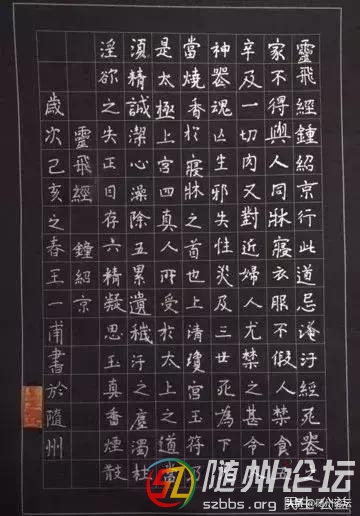 靈飛經鍾紹京行此道忌淹汙經死喪
家不得與人同牀寢衣服不假人禁食五
辛及一切肉又對近婦人尤禁之甚令
神喪魂亡生邪失性災及三世死為下
當燒香於寢牀之首也上清瓊宮玉符乃
是太極上宮四真人所受於太上之道當
須精誠潔心澡除五累遺穢汙之塵濁杜
淫欲之失正目存六精凝思玉真香煙散
靈飛經 鍾紹京
歲次己亥之春王一甫書於隨州
随州论坛
szbbs.org